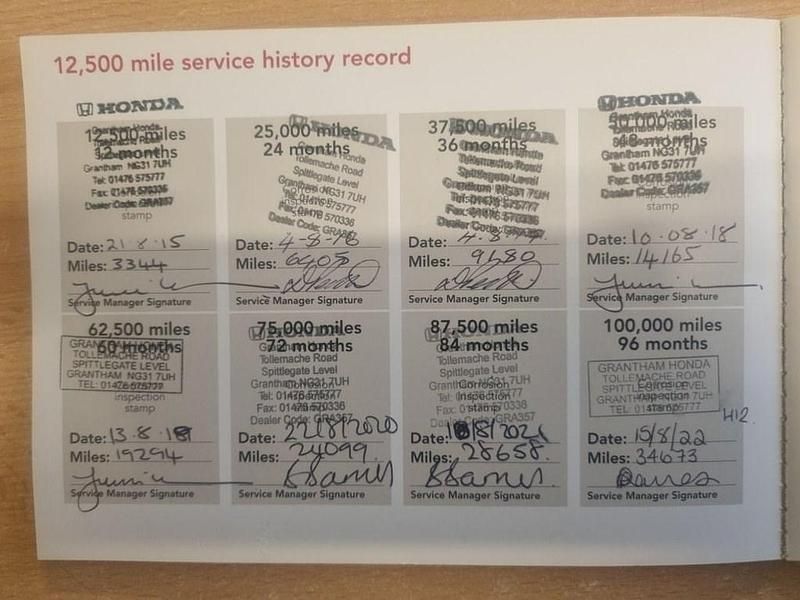 12,500 mile service history record
HONDA
12,500 miles
12 months
Grantham NG31 7UH
Tel: 01476 575777
Fax: 01476 570336
Dealer Code: GRA357
stamp
Date: 21.8.15
Miles: 3344
Service Manager Signature
HONDA
25,000 miles
24 months
Grantham Honda
Tollemache Road
Spittlegate Level
Grantham NG31 7UH
Tel: 01476 575777
Fax: 01476 570336
Dealer Code: GRA357
Date: 4-8-16
Miles: 6408
Service Manager Signature
HONDA
37,500 miles
36 months
Tollemache Road
Spittlegate Level
Grantham NG31 7UH
Tel: 01476 575777
Fax: 01476 570336
Dealer Code: GRA357
Date: 4.8.17.
Miles: 9680
Service Manager Signature
HONDA
50,000 miles
48 months
Grantham NG31 7UH
Tel: 01476 575777
Fax: 01476 570336
Dealer Code: GRA357
stamp
Date: 10.08.18
Miles: 14165
Service Manager Signature
62,500 miles
60 months
GRANTHAM HONDA
TOLLEMACHE ROAD
SPITTLEGATE LEVEL
GRANTHAM NG31 7UH
TEL: 01476 575777
inspection
stamp
Date: 13.8.19
Miles: 19294
Service Manager Signature
HONDA
75,000 miles
72 months
Tollemache Road
Spittlegate Level
Grantham NG31 7UH
Corrosion
Tel: 01476 575777
Fax: 01476 570336
Dealer Code: GRA357
Date: 22/8/2020
Miles: 24099.
Service Manager Signature
HONDA
87,500 miles
84 months
Tollemache Road
Spittlegate Level
Grantham NG31 7UH
Corrosion
Tel: 01476 575777
Fax: 01476 570336
stamp
Dealer Code: GRA357
Date: /8/2021
Miles: 28658.
Service Manager Signature
100,000 miles
96 months
GRANTHAM HONDA
TOLLEMACHE ROAD
SPITTLEGATE LEVEL
GRANTHAM NG31 7UH
TEL: 01476 575777
H12.
Date: 15/8/22
Miles: 34673
Service Manager Signature